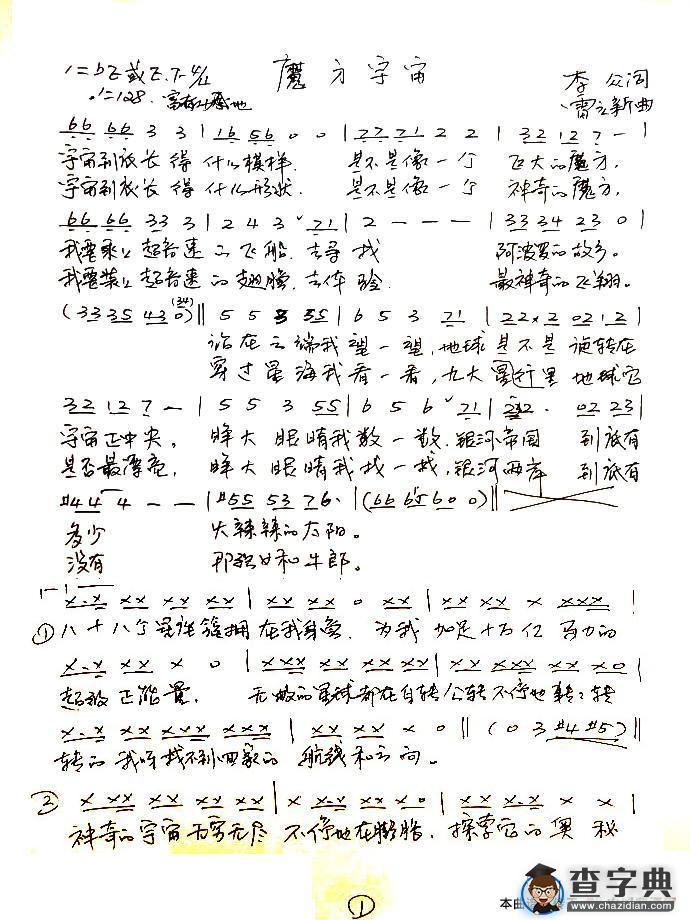 魔方宇宙
1=bE或E. 4/4
李众词
♩=128. 富有动感地
雷立新曲
66 66 3 3 | 16 56 0 0 | 77 71 2 2 | 32 12 7 - |
宇宙到底长得什么模样. 是不是像一个飞大的魔方,
宇宙到底长得什么形状. 是不是像一个神奇的魔方,
66 66 33 3 | 2 4 3 ˇ 71 | 2 - - - | 33 34 23 0 |
我要乘上超音速的飞船,去寻找 阿波罗的故乡。
我要装上超音速的翅膀,去体验 最神奇的飞翔。
(33 35 43 0) (34) || 5 5 3 55 | 6 5 3 71 | 22·2 02 12 |
站在云端我望一望,地球是不是旋转在
穿过星海我看一看,九大行星地球它
32 12 7 - | 5 5 3 55 | 6 5 6 ˇ 71 | 22. 02 23 |
宇宙正中央。睁大眼睛我数一数,银河帝国 到底有
是否最漂亮,睁大眼睛我找一找,银河两岸 到底有
#44 4 - - | #55 53 76· | (66 65 60 0) ||
多少 火辣辣的太阳。
没有 那织女和牛郎。
x·x xx xx xx | xx xx 0 xx | xx xx x xxx |
①八十八个星座簇拥在我身旁, 为我加足十万亿马力的
x·x xx xx x 0 | xxx xxx xx xx | xx xxx xx x0 |
超级正能量, 无数的星球都在自转公转不停地转转
x·x xx xxx xxx | xx xx x 0 || (0 3 #4 #5) ||
转的我呀找不到回家的航线和方向。
② x xxx xx xx | x xx xx x0 | xx xxx x x |
神奇的宇宙无穷无尽 不停地在膨胀, 探索它的奥秘
①
查字典
www.chazidian.com